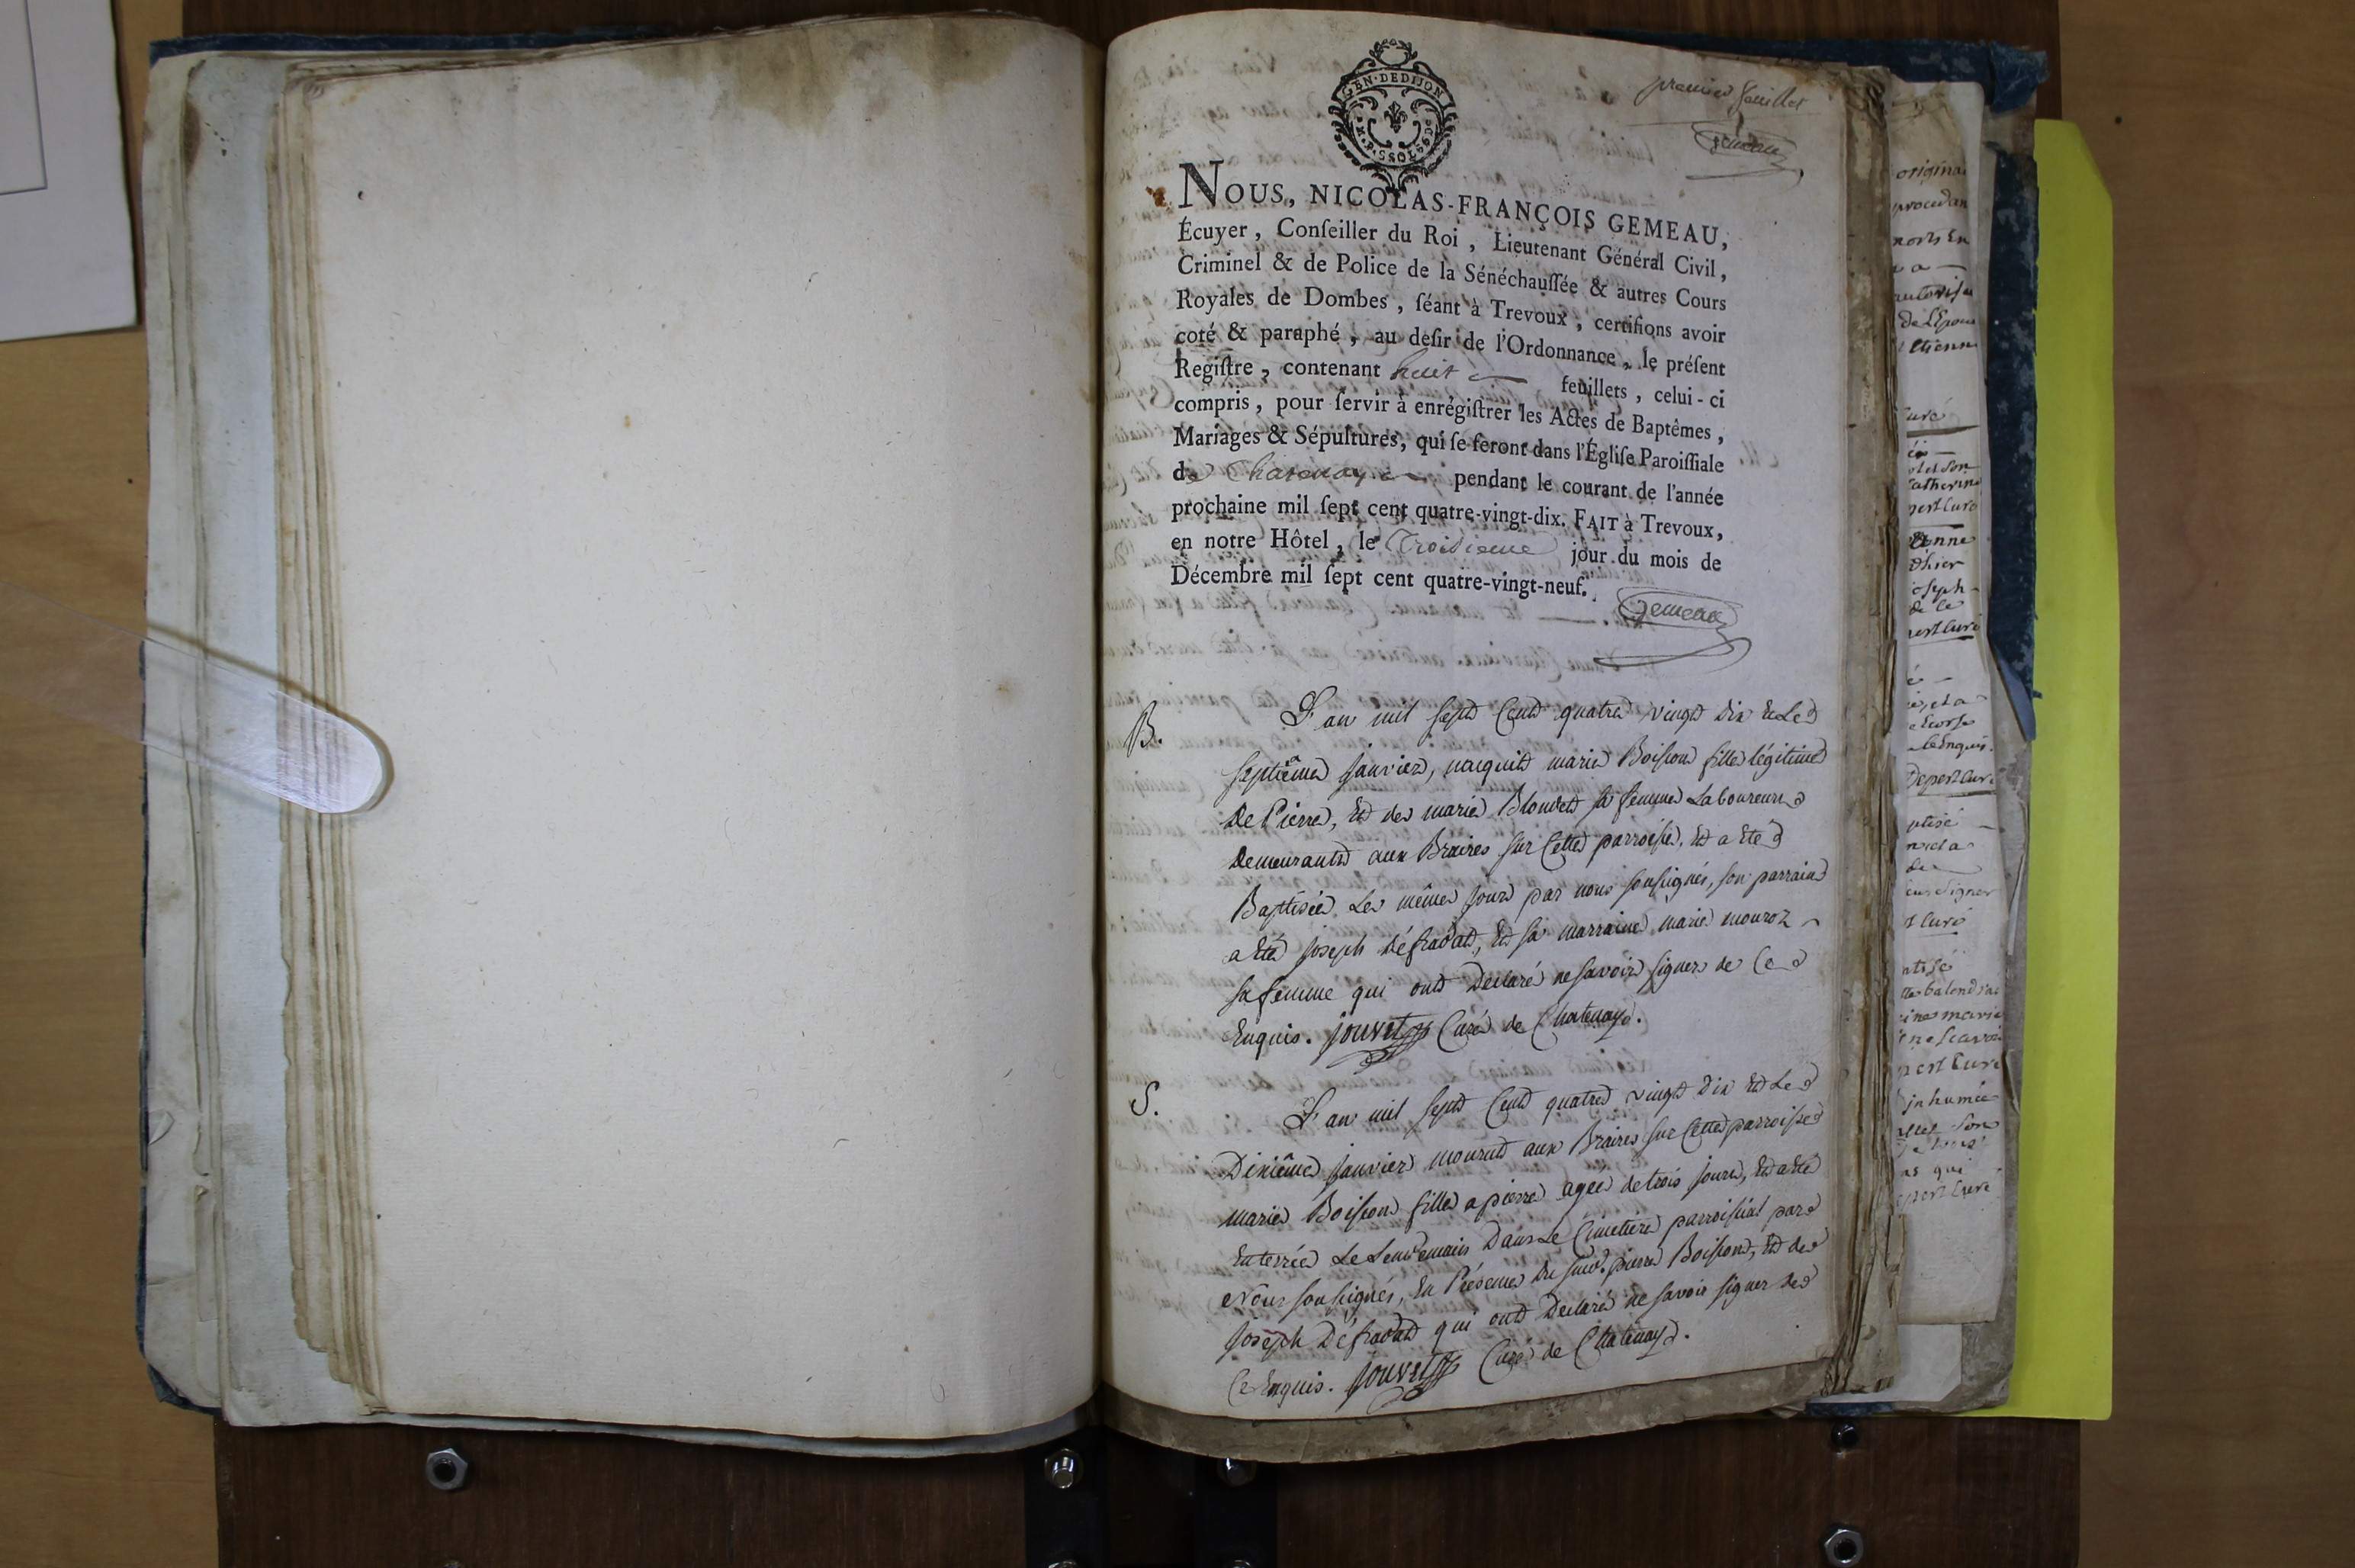 GEN·DEDIJON
premier feuillet
Gemeau
NOUS, NICOLAS-FRANÇOIS GEMEAU,
Écuyer, Conſeiller du Roi, Lieutenant Général Civil,
Criminel & de Police de la Sénéchauſſée & autres Cours
Royales de Dombes, ſéant à Trevoux, certifions avoir
coté & paraphé, au deſir de l'Ordonnance, le préſent
Regiſtre, contenant huit feuillets, celui-ci
compris, pour ſervir à enrégiſtrer les Actes de Baptêmes,
Mariages & Sépultures, qui ſe feront dans l'Égliſe Paroiſſiale
de Chatenay pendant le courant de l'année
prochaine mil ſept cent quatre-vingt-dix. FAIT à Trevoux,
en notre Hôtel, le Troisieme jour du mois de
Décembre mil ſept cent quatre-vingt-neuf.
Gemeau
B.
L'an mil sept Cent quatre vingt dix et Le
septiême janvier, naquit marie Boisson fille légitime
De Pierre, Et de marie Blondet sa femme Laboureurs
Demeurants aux Braires sur Cette parroisse, Et a Eté
Baptisée Le même jour par nous soussignés, son parrain
a Eté joseph défradat, Et sa marraine marie mouroz
sa femme qui ont Declaré ne savoir signer de Ce
Enquis. jouvet Curé de Chatenay.
S.
L'an mil sept Cent quatre vingt Dix Et Le
Dixiême janvier mourut aux Braires sur Cette parroisse
marie Boisson fille a pierre agée de trois jours, Et a Eté
Enterrée Le Lendemain Dans Le Cimetière parroissial par
Nous soussignés, En Présence du susd. pierre Boisson, Et de
joseph Défradat qui ont Declaré ne savoir signer de
Ce Enquis. jouvet Curé de Chatenay.